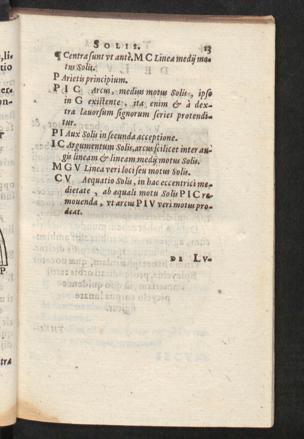 SOLIS. 13
¶ Centra sunt vt antè. M C Linea medij mo-
tus Solis.
P Arietis principium.
P I C Arcus, medius motus Solis, ipso
in G existente, ita enim & à dex-
tra læuorsum signorum series protendi-
tur.
P I Aux Solis in secunda acceptione.
I C Argumentum Solis, arcus scilicet inter au-
gis lineam & lineam medij motus Solis.
M G V Linea veri loci seu motus Solis.
C V Aequatio Solis, in hac eccentrici me-
dietate, ab æquali motu Solis P I C re-
mouenda, vt arcus P I V veri motus pro-
deat.
DE LV-